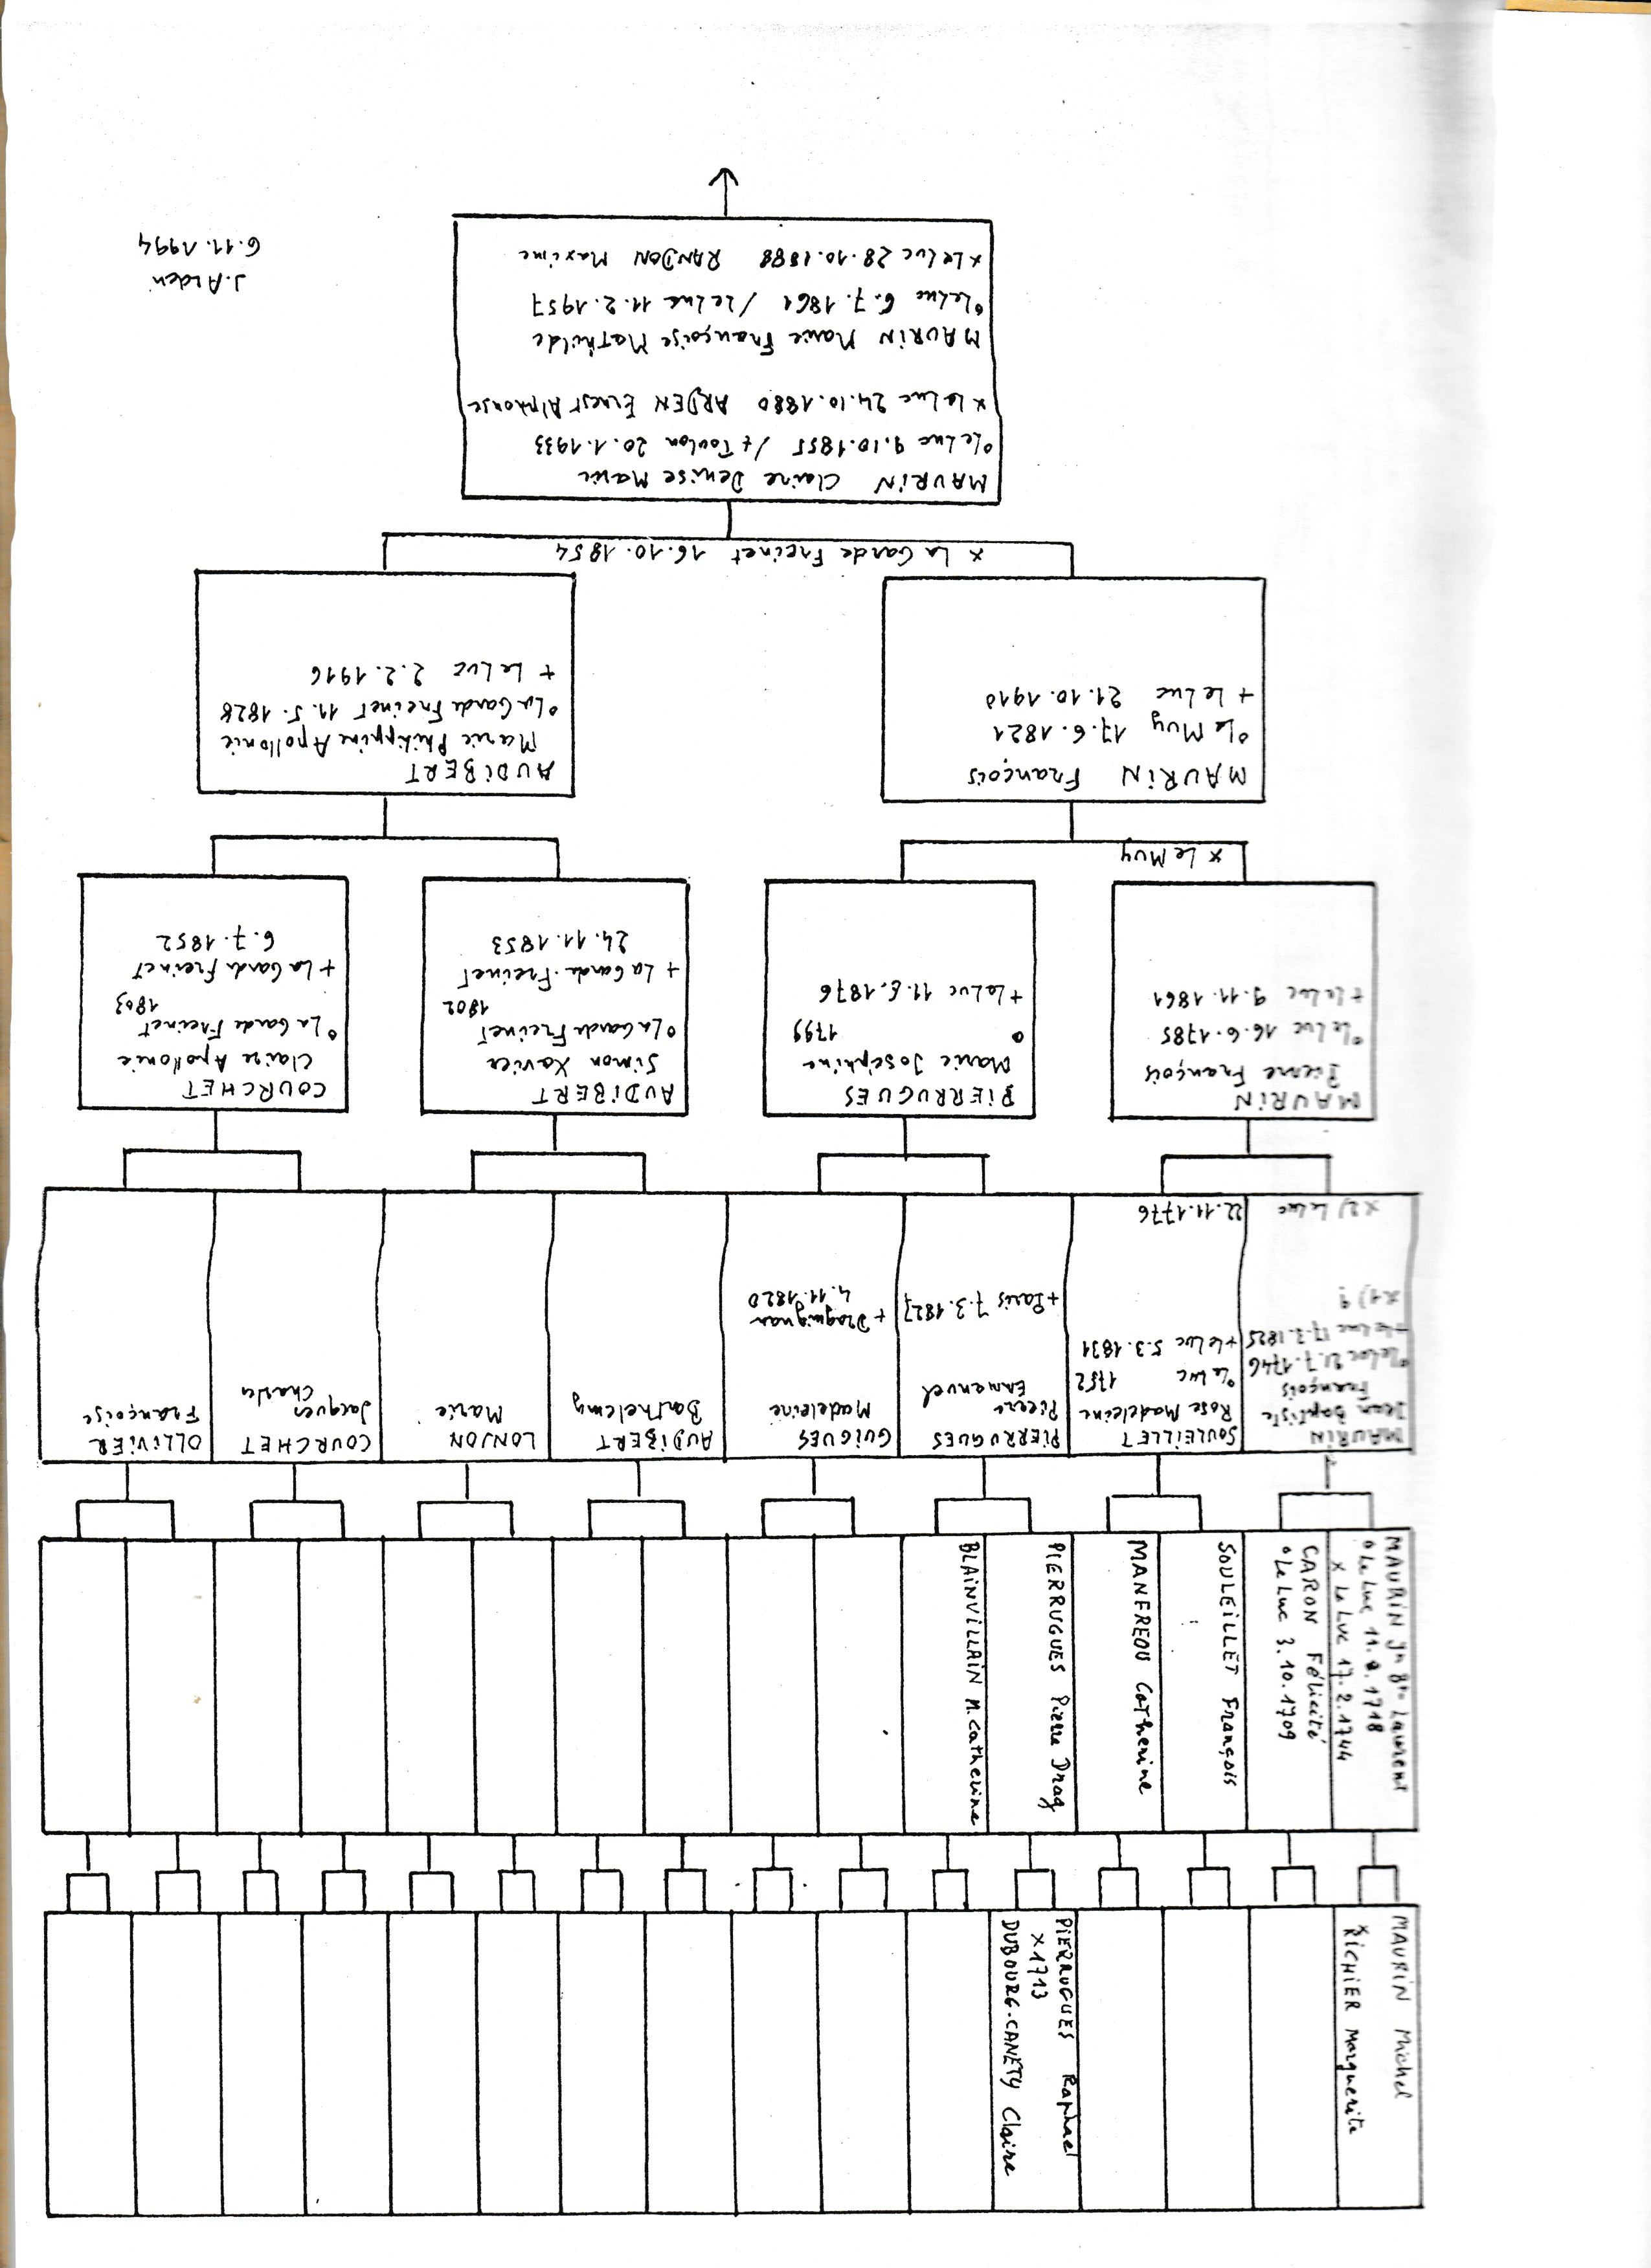 MAURIN Michel
x
RICHIER Marguerite
PIERRUGUES Raphael
x 1713
DUBOURG-CANETY Claire
MAURIN Jn Bte Laurent
° Le Luc 11. 1718
x Le Luc 17.2.1744
CARON Félicité
° Le Luc 3.10.1709
SOULEILLET François
MANFREDU Catherine
PIERRUGUES Pierre Drag
BLAINVILLAIN M. Catherine
MAURIN
Jean Baptiste
François
° Le Luc 21.7.1746
+ Le Luc 17.3.1825
x 1) ?
x 2) Le Luc
22.11.1776
SOULEILLET
Rose Madeleine
° Le Luc 1752
+ Le Luc 5.3.1831
PIERRUGUES
Pierre
Emmanuel
+ Paris 7.3.1827
GUIGUES
Madeleine
+ Draguignan
4.11.1820
AUDIBERT
Barthelemy
LONJON
Marie
COURCHET
Jacques
Charles
OLLIVIER
Françoise
MAURIN
Pierre François
° Le Luc 16.6.1785
+ Le Luc 9.11.1861
PIERRUGUES
Marie Joséphine
° 1799
+ Le Luc 11.6.1876
AUDIBERT
Simon Xavier
° La Garde Freinet
1802
+ La Garde-Freinet
24.11.1853
COURCHET
Claire Apollonie
° La Garde Freinet
1803
+ La Garde Freinet
6.7.1852
x Le Muy
MAURIN François
° Le Muy 17.6.1821
+ Le Luc 21.10.1910
AUDIBERT
Marie Philippine Apollonie
° La Garde Freinet 11.5.1828
+ Le Luc 2.2.1916
x La Garde Freinet 16.10.1854
MAURIN Claire Denise Marie
° Le Luc 9.10.1855 / + Toulon 20.1.1933
x Le Luc 24.10.1880 ARDEN Ernest Alphonse
MAURIN Marie Françoise Mathilde
° Le Luc 6.7.1861 / Le Luc 11.2.1957
x Le Luc 28.10.1888 RANDON Maxime
J. Arden
6.11.1994